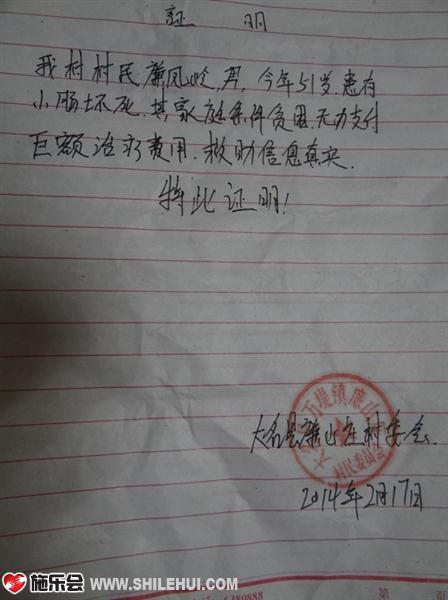 证 明
我村村民廉凤,男,今年51岁患有
小肠坏死.其家庭条件贫困.无力支付
巨额治疗费用.救助信息真实.
特此证明!
万堤镇廉山
村民委员会
大名县廉山庄村委会.
2014年2月17日
6280888
第
施乐会 WWW.SHILEHUI.COM